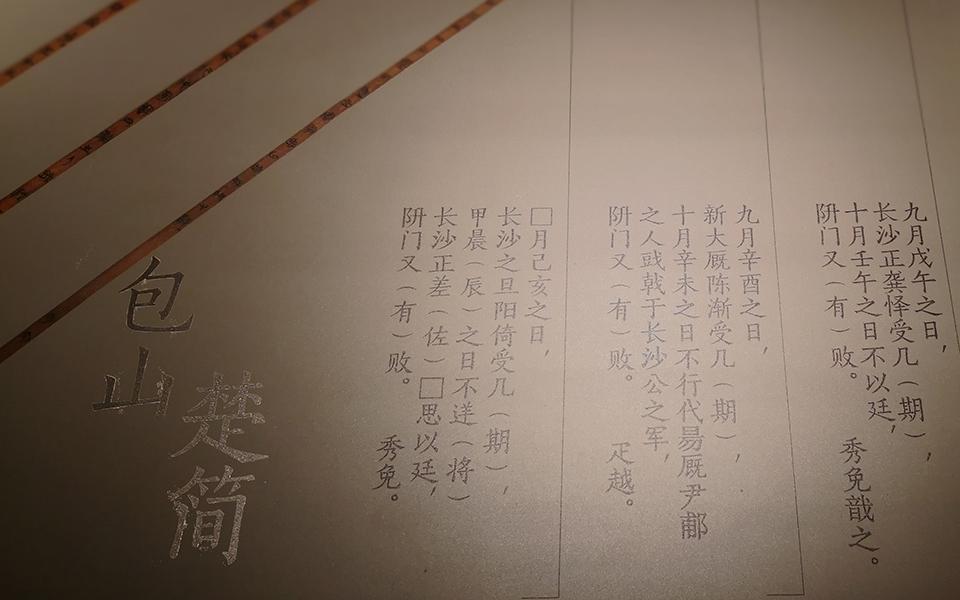 九月戊午之日，
长沙正龚怿受几（期），
十月壬午之日不以廷，
阩门又（有）败。 秀免戠之。
九月辛酉之日，
新大厩陈渐受几（期），
十月辛未之日不行代昜厩尹郙
之人䟒戟于长沙公之军，
阩门又（有）败。 疋越。
□月己亥之日，
长沙之旦阳倚受几（期），
甲晨（辰）之日不逘（将）
长沙正差（佐）□思以廷，
阩门又（有）败。 秀免。
包山
楚简